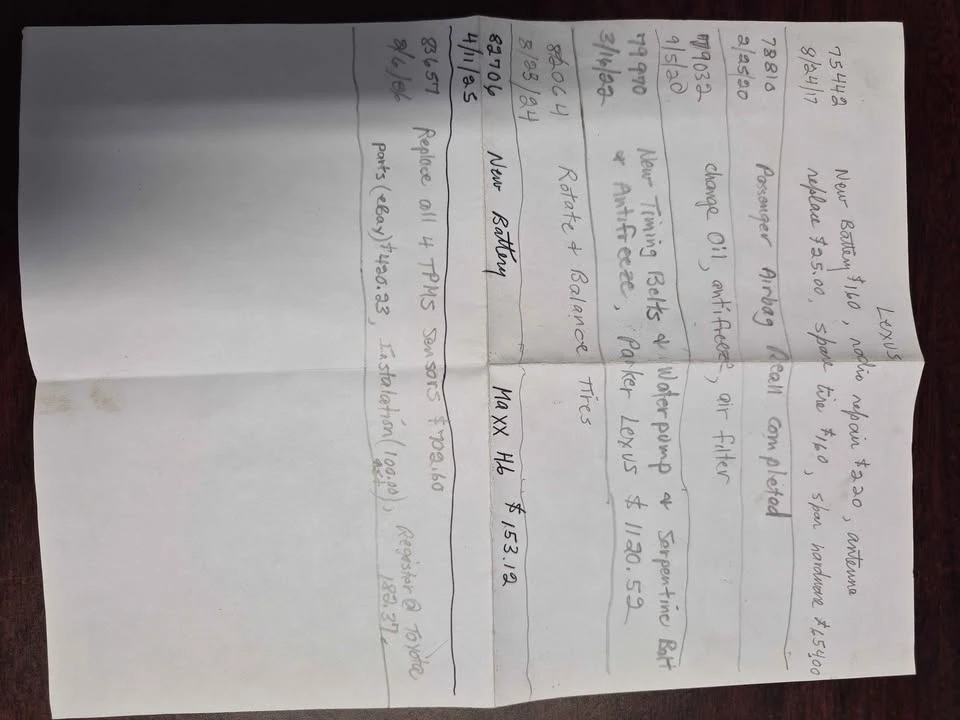 Lexus
75442 New Battery $160, radio repair $220, antenna
8/24/17 replace $25.00, spare tire $160, spar hardware $654.00
78810 Passenger Airbag Recall completed
2/25/20
79032 change Oil, antifreeze, air filter
9/5/20
79970 New Timing Belts & Waterpump & Serpentine Belt
3/16/22 & Antifreeze, Parker Lexus $1120.52
82064 Rotate & Balance Tires
3/23/24
82706 New Battery Maxx H6 $153.12
4/11/25
83657 Replace all 4 TPMS Sensors $702.60
parts (ebay) $420.23, Instalation (100.00), Register @ Toyota
182.37